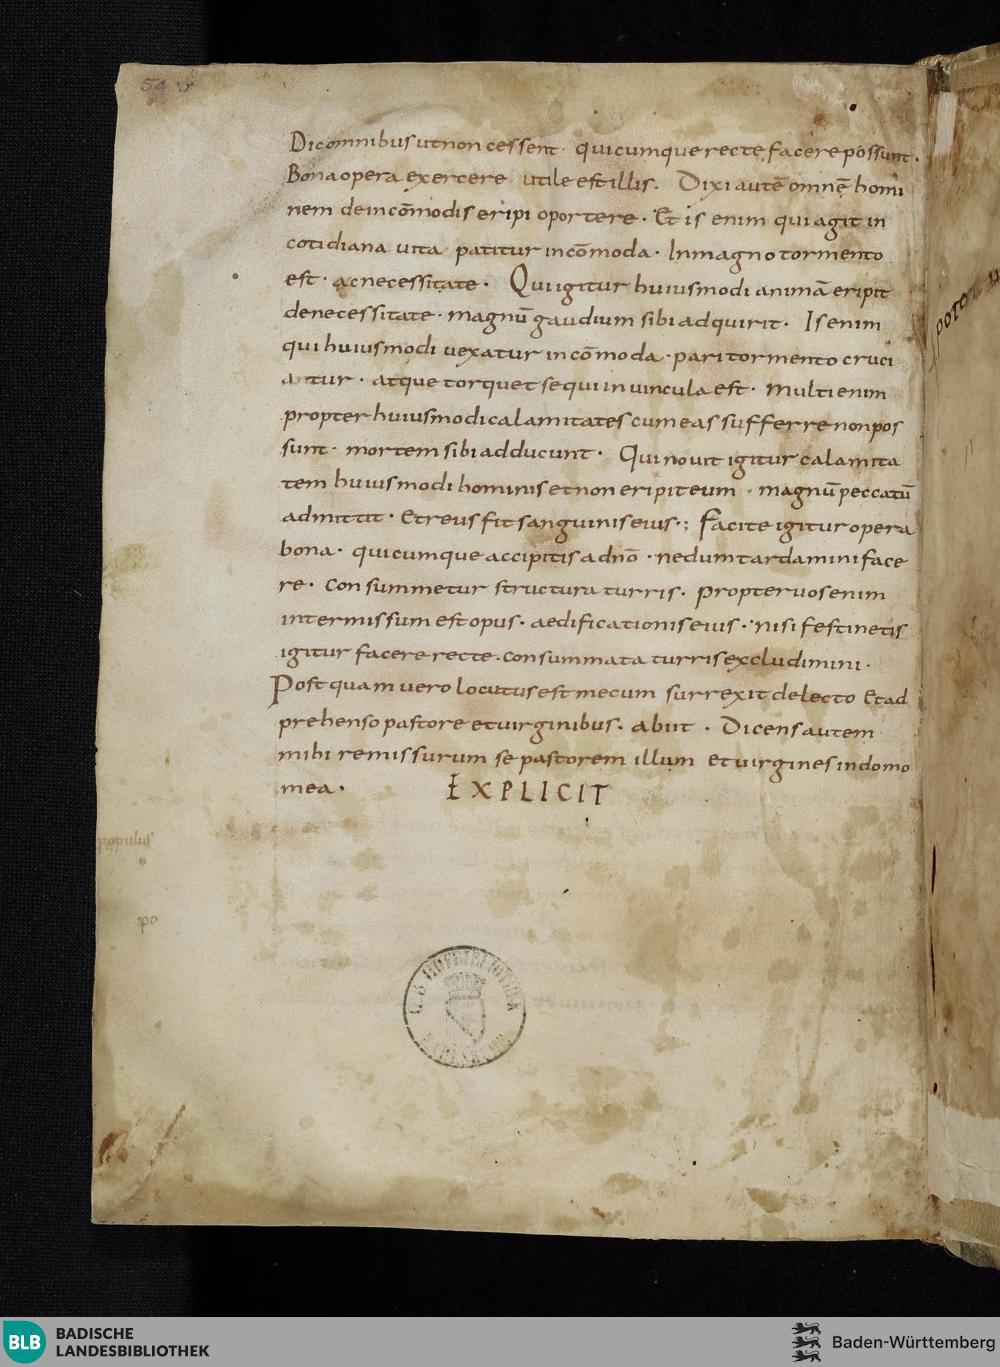 54 v
Dic omnibus ut non cessent · quicumque recte facere possunt ·
Bona opera exercere utile est illis · Dixi autē omnē homi
nem de incōmodis eripi oportere · Et is enim qui agit in
cotidiana uita patitur incōmoda · In magno tormento
est · ac necessitate · Qui igitur huiusmodi animā eripit
de necessitate · magnū gaudium sibi adquirit · Is enim
qui huiusmodi uexatur incōmoda · pari tormento cruci
atur · atque torquet se qui in uincula est · Multi enim
propter huiusmodi calamitates cum eas sufferre non pos
sunt · mortem sibi adducunt · Qui nouit igitur calamita
tem huiusmodi hominis et non eripit eum · magnū peccatū
admittit · Et reus fit sanguinis eius · ; Facite igitur opera
bona · quicumque accipitis a dnō · ne dum tardamini face
re · consummetur structura turris · propter uos enim
intermissum est opus · aedificationis eius · nisi festinetis
igitur facere recte · consummata turris excludimini ·
Post quam uero locutus est mecum surrexit de lecto Et ad
prehenso pastore et uirginibus · abiit · Dicens autem
mihi remissurum se pastorem illum et uirgines in domo
mea · EXPLICIT
populus
po
HOFBIBLIOTHEK
BLB
BADISCHE
LANDESBIBLIOTHEK
Baden-Württemberg